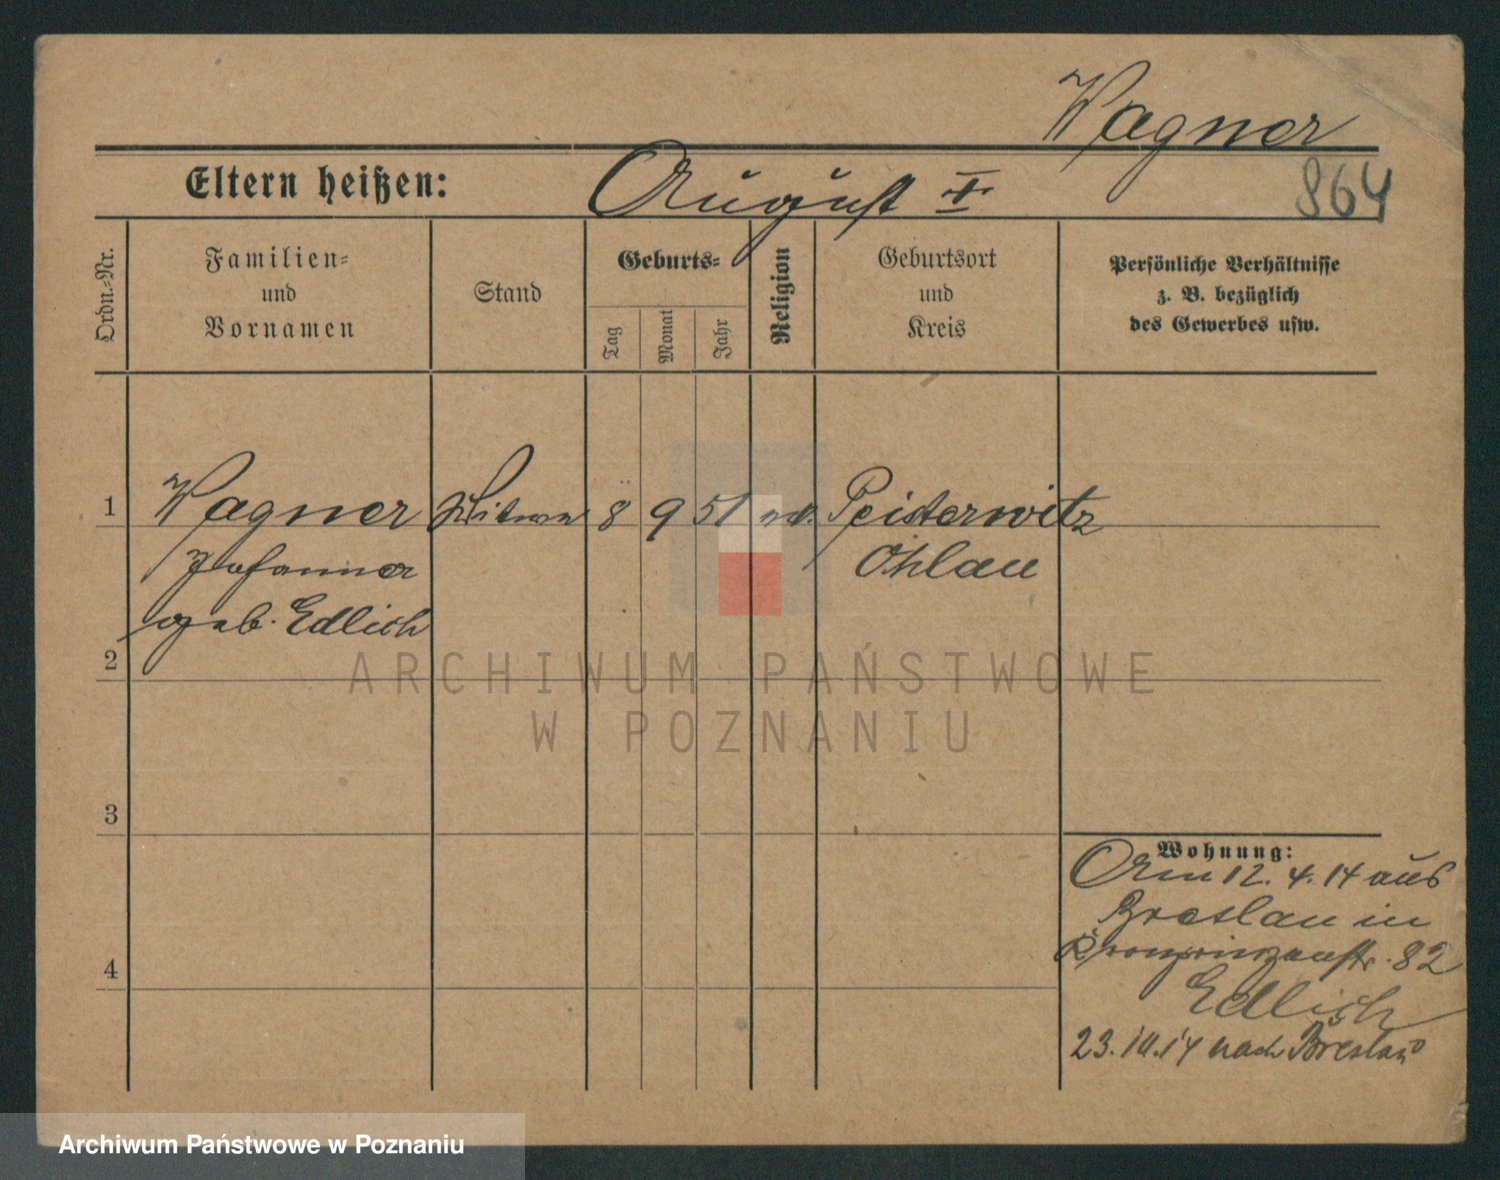 Wagner
864
Eltern heißen: August I.
Ordn.-Nr.
Familien-
und
Vornamen
Stand
Geburts-
Tag
Monat
Jahr
Religion
Geburtsort
und
Kreis
Persönliche Verhältnisse
z. B. bezüglich
des Gewerbes usw.
1 Wagner Witwe 8 9 51 Peisterwitz
Johanna Ohlau
geb. Edlich
2
3
4
Wohnung:
Am 12. 4. 14 aus
Breslau in
Kronprinzenstr. 82
Edlich
23. 10. 14 nach Breslau
ARCHIWUM PAŃSTWOWE
W POZNANIU
Archiwum Państwowe w Poznaniu